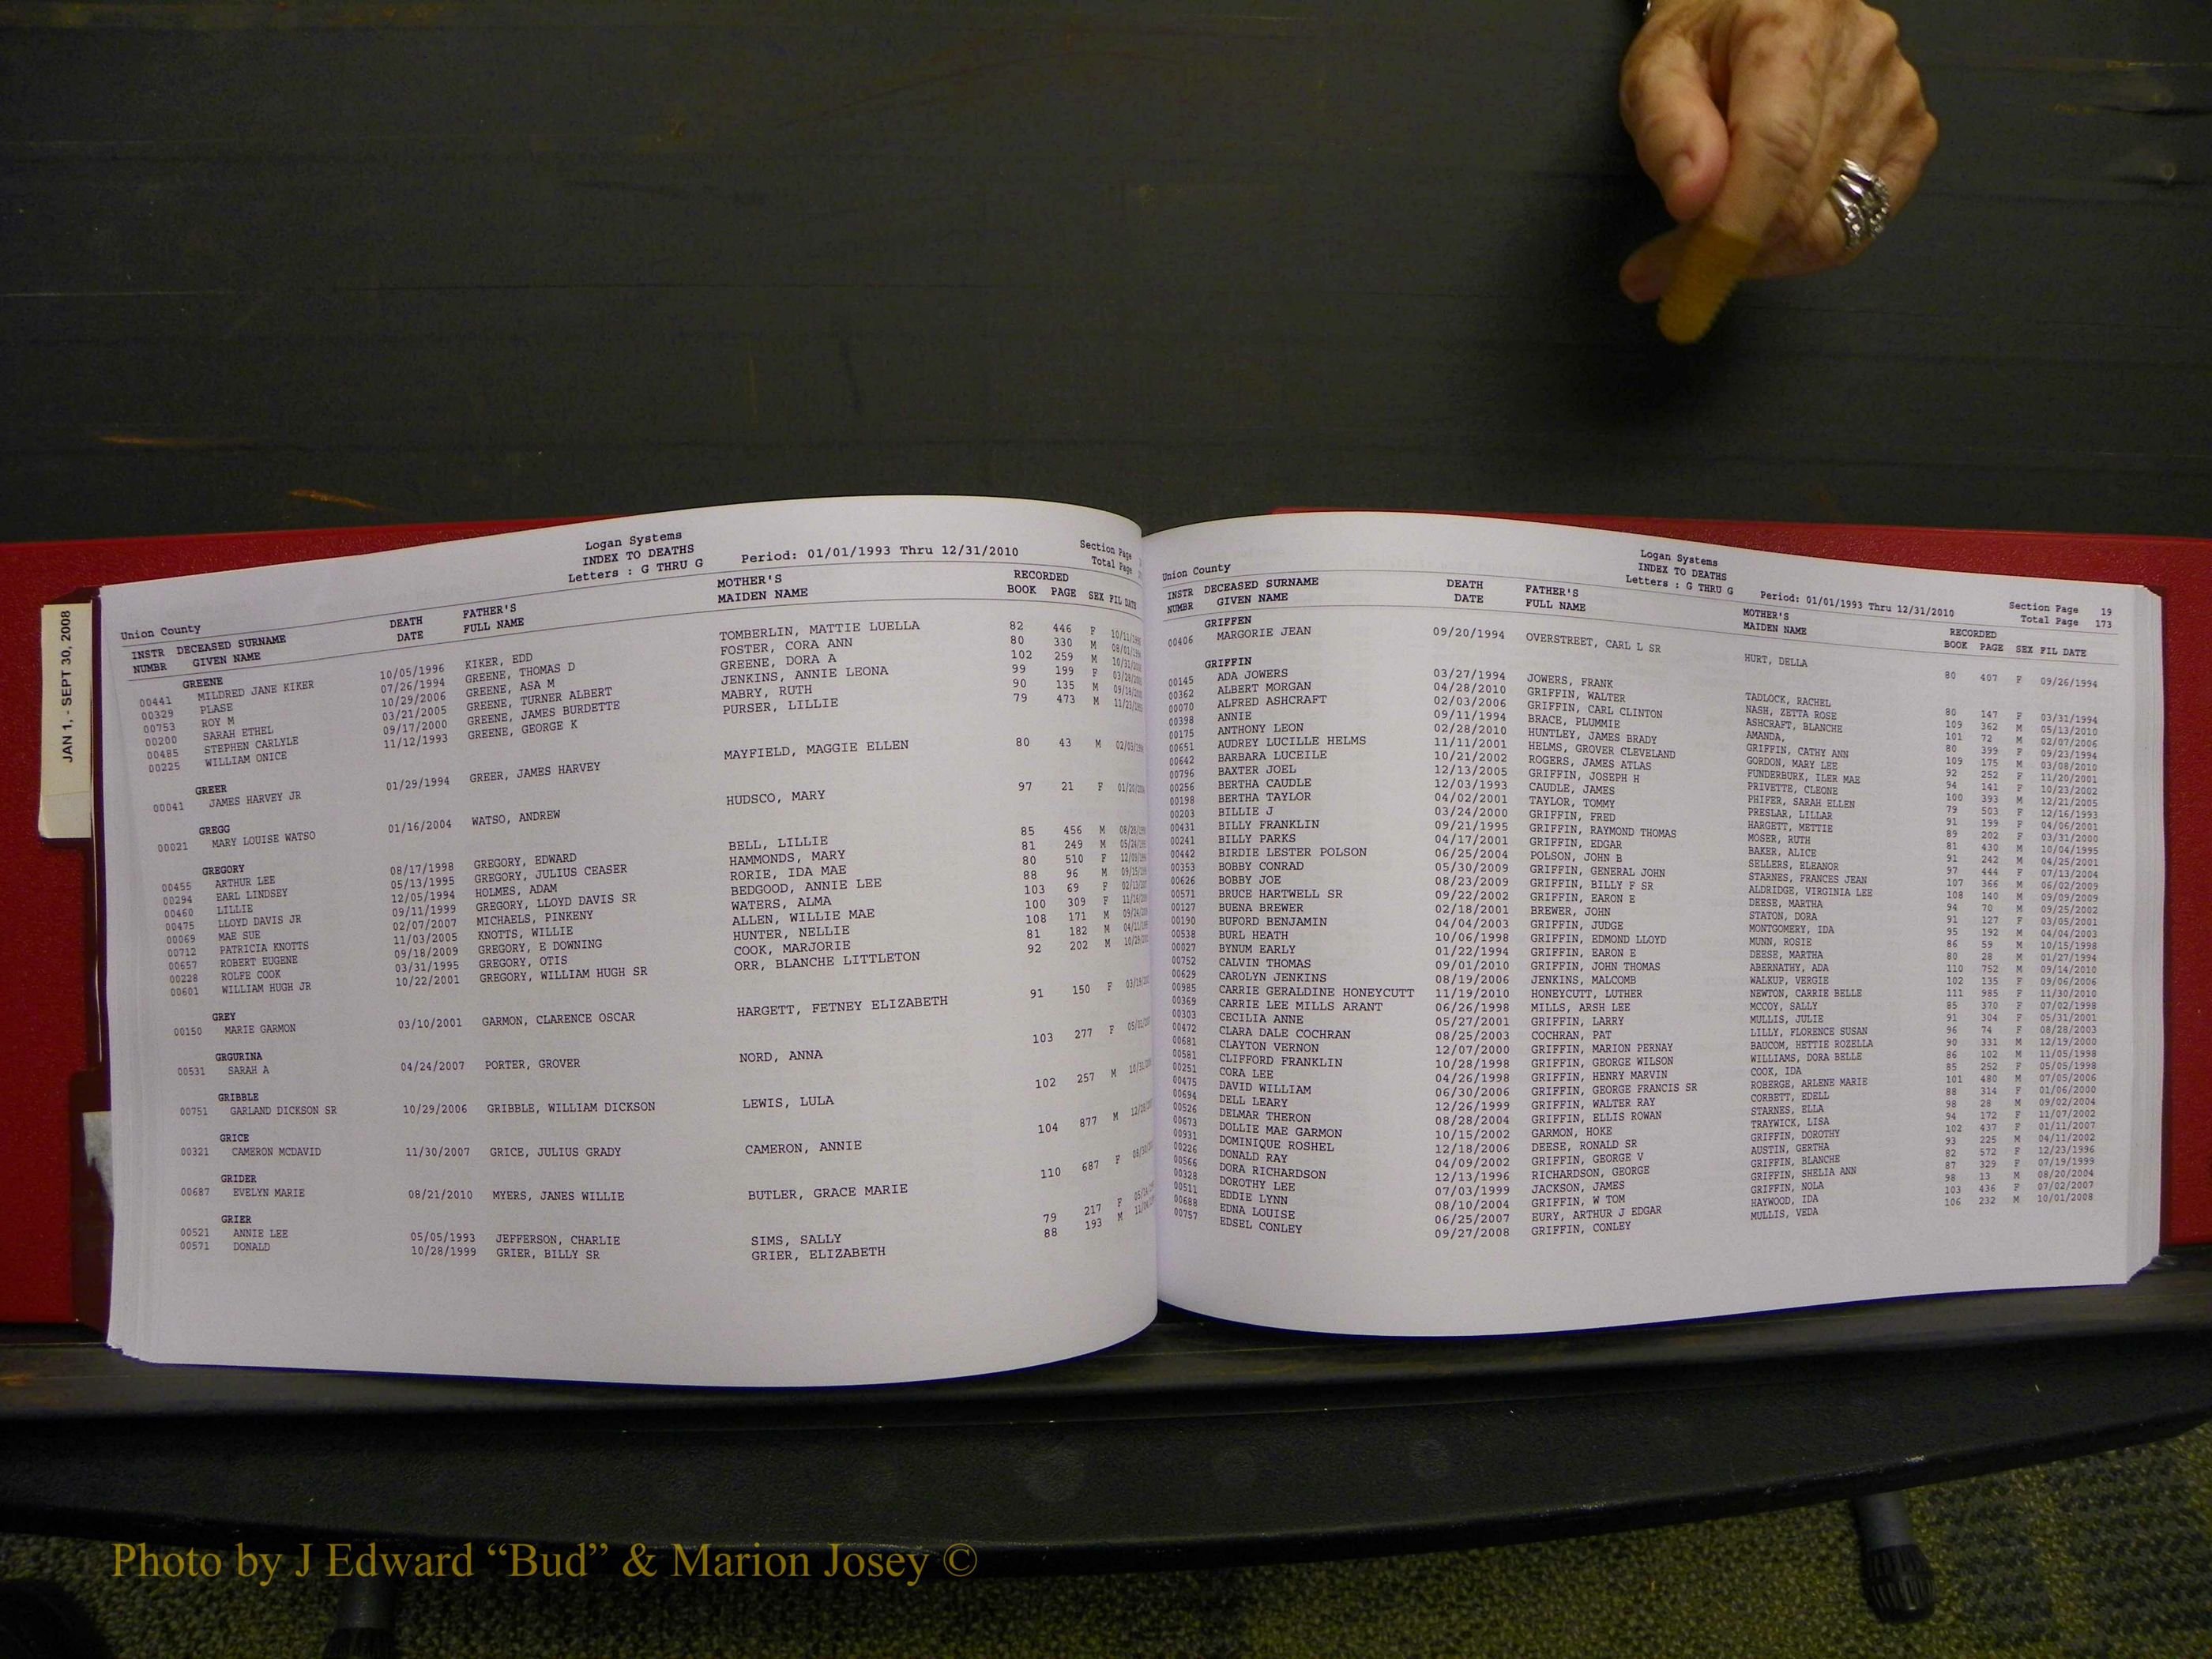 JAN 1, - SEPT 30, 2008
Logan Systems
INDEX TO DEATHS
Union County Letters : G THRU G Period: 01/01/1993 Thru 12/31/2010 Section Page
Total Page
INSTR DECEASED SURNAME DEATH FATHER'S MOTHER'S RECORDED
NUMBR GIVEN NAME DATE FULL NAME MAIDEN NAME BOOK PAGE SEX FIL DATE
GREENE
00441 MILDRED JANE KIKER 10/05/1996 KIKER, EDD TOMBERLIN, MATTIE LUELLA 82 446 F
00329 PLASE 07/26/1994 GREENE, THOMAS D FOSTER, CORA ANN 80 330 M
00753 ROY M 10/29/2006 GREENE, ASA M GREENE, DORA A 102 259 M
00200 SARAH ETHEL 03/21/2005 GREENE, TURNER ALBERT JENKINS, ANNIE LEONA 99 199 F
00485 STEPHEN CARLYLE 09/17/2000 GREENE, JAMES BURDETTE MABRY, RUTH 90 135 M
00225 WILLIAM ONICE 11/12/1993 GREENE, GEORGE K PURSER, LILLIE 79 473 M
GREER
00041 JAMES HARVEY JR 01/29/1994 GREER, JAMES HARVEY MAYFIELD, MAGGIE ELLEN 80 43 M
GREGG
00021 MARY LOUISE WATSO 01/16/2004 WATSO, ANDREW HUDSCO, MARY 97 21 F
GREGORY
00455 ARTHUR LEE 08/17/1998 GREGORY, EDWARD BELL, LILLIE 85 456 M
00294 EARL LINDSEY 05/13/1995 GREGORY, JULIUS CEASER HAMMONDS, MARY 81 249 M
00460 LILLIE 12/05/1994 HOLMES, ADAM RORIE, IDA MAE 80 510 F
00475 LLOYD DAVIS JR 09/11/1999 GREGORY, LLOYD DAVIS SR BEDGOOD, ANNIE LEE 88 96 M
00069 MAE SUE 02/07/2007 MICHAELS, PINKENY WATERS, ALMA 103 69 F
00712 PATRICIA KNOTTS 11/03/2005 KNOTTS, WILLIE ALLEN, WILLIE MAE 100 309 F
00657 ROBERT EUGENE 09/18/2009 GREGORY, E DOWNING HUNTER, NELLIE 108 171 M
00228 ROLFE COOK 03/31/1995 GREGORY, OTIS COOK, MARJORIE 81 182 M
00601 WILLIAM HUGH JR 10/22/2001 GREGORY, WILLIAM HUGH SR ORR, BLANCHE LITTLETON 92 202 M
GREY
00150 MARIE GARMON 03/10/2001 GARMON, CLARENCE OSCAR HARGETT, FETNEY ELIZABETH 91 150 F
GRGURINA
00531 SARAH A 04/24/2007 PORTER, GROVER NORD, ANNA 103 277 F
GRIBBLE
00751 GARLAND DICKSON SR 10/29/2006 GRIBBLE, WILLIAM DICKSON LEWIS, LULA 102 257 M
GRICE
00321 CAMERON MCDAVID 11/30/2007 GRICE, JULIUS GRADY CAMERON, ANNIE 104 877 M
GRIDER
00687 EVELYN MARIE 08/21/2010 MYERS, JANES WILLIE BUTLER, GRACE MARIE 110 687 F
GRIER
00521 ANNIE LEE 05/05/1993 JEFFERSON, CHARLIE SIMS, SALLY 79 217 F
00571 DONALD 10/28/1999 GRIER, BILLY SR GRIER, ELIZABETH 88 193 M
Logan Systems
INDEX TO DEATHS
Union County Letters : G THRU G Period: 01/01/1993 Thru 12/31/2010 Section Page 19
Total Page 173
INSTR DECEASED SURNAME DEATH FATHER'S MOTHER'S RECORDED
NUMBR GIVEN NAME DATE FULL NAME MAIDEN NAME BOOK PAGE SEX FIL DATE
GRIFFEN
00406 MARGORIE JEAN 09/20/1994 OVERSTREET, CARL L SR HURT, DELLA 80 407 F 09/26/1994
GRIFFIN
00145 ADA JOWERS 03/27/1994 JOWERS, FRANK TADLOCK, RACHEL 80 147 F 03/31/1994
00362 ALBERT MORGAN 04/28/2010 GRIFFIN, WALTER NASH, ZETTA ROSE 109 362 M 05/13/2010
00070 ALFRED ASHCRAFT 02/03/2006 GRIFFIN, CARL CLINTON ASHCRAFT, BLANCHE 101 72 M 02/07/2006
00398 ANNIE 09/11/1994 BRACE, PLUMMIE AMANDA, 80 399 F 09/23/1994
00175 ANTHONY LEON 02/28/2010 HUNTLEY, JAMES BRADY GRIFFIN, CATHY ANN 109 175 M 03/08/2010
00651 AUDREY LUCILLE HELMS 11/11/2001 HELMS, GROVER CLEVELAND GORDON, MARY LEE 92 252 F 11/20/2001
00642 BARBARA LUCEILE 10/21/2002 ROGERS, JAMES ATLAS FUNDERBURK, ILER MAE 94 141 F 10/23/2002
00796 BAXTER JOEL 12/13/2005 GRIFFIN, JOSEPH H PRIVETTE, CLEONE 100 393 M 12/21/2005
00256 BERTHA CAUDLE 12/03/1993 CAUDLE, JAMES PHIFER, SARAH ELLEN 79 503 F 12/16/1993
00198 BERTHA TAYLOR 04/02/2001 TAYLOR, TOMMY PRESLAR, LILLAR 91 199 F 04/06/2001
00203 BILLIE J 03/24/2000 GRIFFIN, FRED HARGETT, METTIE 89 202 F 03/31/2000
00431 BILLY FRANKLIN 09/21/1995 GRIFFIN, RAYMOND THOMAS MOSER, RUTH 81 430 M 10/04/1995
00241 BILLY PARKS 04/17/2001 GRIFFIN, EDGAR BAKER, ALICE 91 242 M 04/25/2001
00442 BIRDIE LESTER POLSON 06/25/2004 POLSON, JOHN B SELLERS, ELEANOR 97 444 F 07/13/2004
00353 BOBBY CONRAD 05/30/2009 GRIFFIN, GENERAL JOHN STARNES, FRANCES JEAN 107 366 M 06/02/2009
00626 BOBBY JOE 08/23/2009 GRIFFIN, BILLY F SR ALDRIDGE, VIRGINIA LEE 108 140 M 09/09/2009
00571 BRUCE HARTWELL SR 09/22/2002 GRIFFIN, EARON E DEESE, MARTHA 94 70 M 09/25/2002
00127 BUENA BREWER 02/18/2001 BREWER, JOHN STATON, DORA 91 127 F 03/05/2001
00190 BUFORD BENJAMIN 04/04/2003 GRIFFIN, JUDGE MONTGOMERY, IDA 95 192 M 04/04/2003
00538 BURL HEATH 10/06/1998 GRIFFIN, EDMOND LLOYD MUNN, ROSIE 86 59 M 10/15/1998
00027 BYNUM EARLY 01/22/1994 GRIFFIN, EARON E DEESE, MARTHA 80 28 M 01/27/1994
00752 CALVIN THOMAS 09/01/2010 GRIFFIN, JOHN THOMAS ABERNATHY, ADA 110 752 M 09/14/2010
00629 CAROLYN JENKINS 08/19/2006 JENKINS, MALCOMB WALKUP, VERGIE 102 135 F 09/06/2006
00985 CARRIE GERALDINE HONEYCUTT 11/19/2010 HONEYCUTT, LUTHER NEWTON, CARRIE BELLE 111 985 F 11/30/2010
00369 CARRIE LEE MILLS ARANT 06/26/1998 MILLS, ARSH LEE MCCOY, SALLY 85 370 F 07/02/1998
00303 CECILIA ANNE 05/27/2001 GRIFFIN, LARRY MULLIS, JULIE 91 304 F 05/31/2001
00472 CLARA DALE COCHRAN 08/25/2003 COCHRAN, PAT LILLY, FLORENCE SUSAN 96 74 F 08/28/2003
00681 CLAYTON VERNON 12/07/2000 GRIFFIN, MARION PERNAY BAUCOM, HETTIE ROZELLA 90 331 M 12/19/2000
00581 CLIFFORD FRANKLIN 10/28/1998 GRIFFIN, GEORGE WILSON WILLIAMS, DORA BELLE 86 102 M 11/05/1998
00251 CORA LEE 04/26/1998 GRIFFIN, HENRY MARVIN COOK, IDA 85 252 F 05/05/1998
00475 DAVID WILLIAM 06/30/2006 GRIFFIN, GEORGE FRANCIS SR ROBERGE, ARLENE MARIE 101 480 M 07/05/2006
00694 DELL LEARY 12/26/1999 GRIFFIN, WALTER RAY CORBETT, EDELL 88 314 F 01/06/2000
00526 DELMAR THERON 08/28/2004 GRIFFIN, ELLIS ROWAN STARNES, ELLA 98 28 M 09/02/2004
00673 DOLLIE MAE GARMON 10/15/2002 GARMON, HOKE TRAYWICK, LISA 94 172 F 11/07/2002
00931 DOMINIQUE ROSHEL 12/18/2006 DEESE, RONALD SR GRIFFIN, DOROTHY 102 437 F 01/11/2007
00226 DONALD RAY 04/09/2002 GRIFFIN, GEORGE V AUSTIN, GERTHA 93 225 M 04/11/2002
00566 DORA RICHARDSON 12/13/1996 RICHARDSON, GEORGE GRIFFIN, BLANCHE 82 572 F 12/23/1996
00328 DOROTHY LEE 07/03/1999 JACKSON, JAMES GRIFFIN, SHELIA ANN 87 329 F 07/19/1999
00511 EDDIE LYNN 08/10/2004 GRIFFIN, W TOM GRIFFIN, NOLA 98 13 M 08/20/2004
00688 EDNA LOUISE 06/25/2007 EURY, ARTHUR J EDGAR HAYWOOD, IDA 103 436 F 07/02/2007
00757 EDSEL CONLEY 09/27/2008 GRIFFIN, CONLEY MULLIS, VEDA 106 232 M 10/01/2008
Photo by J Edward “Bud” & Marion Josey ©